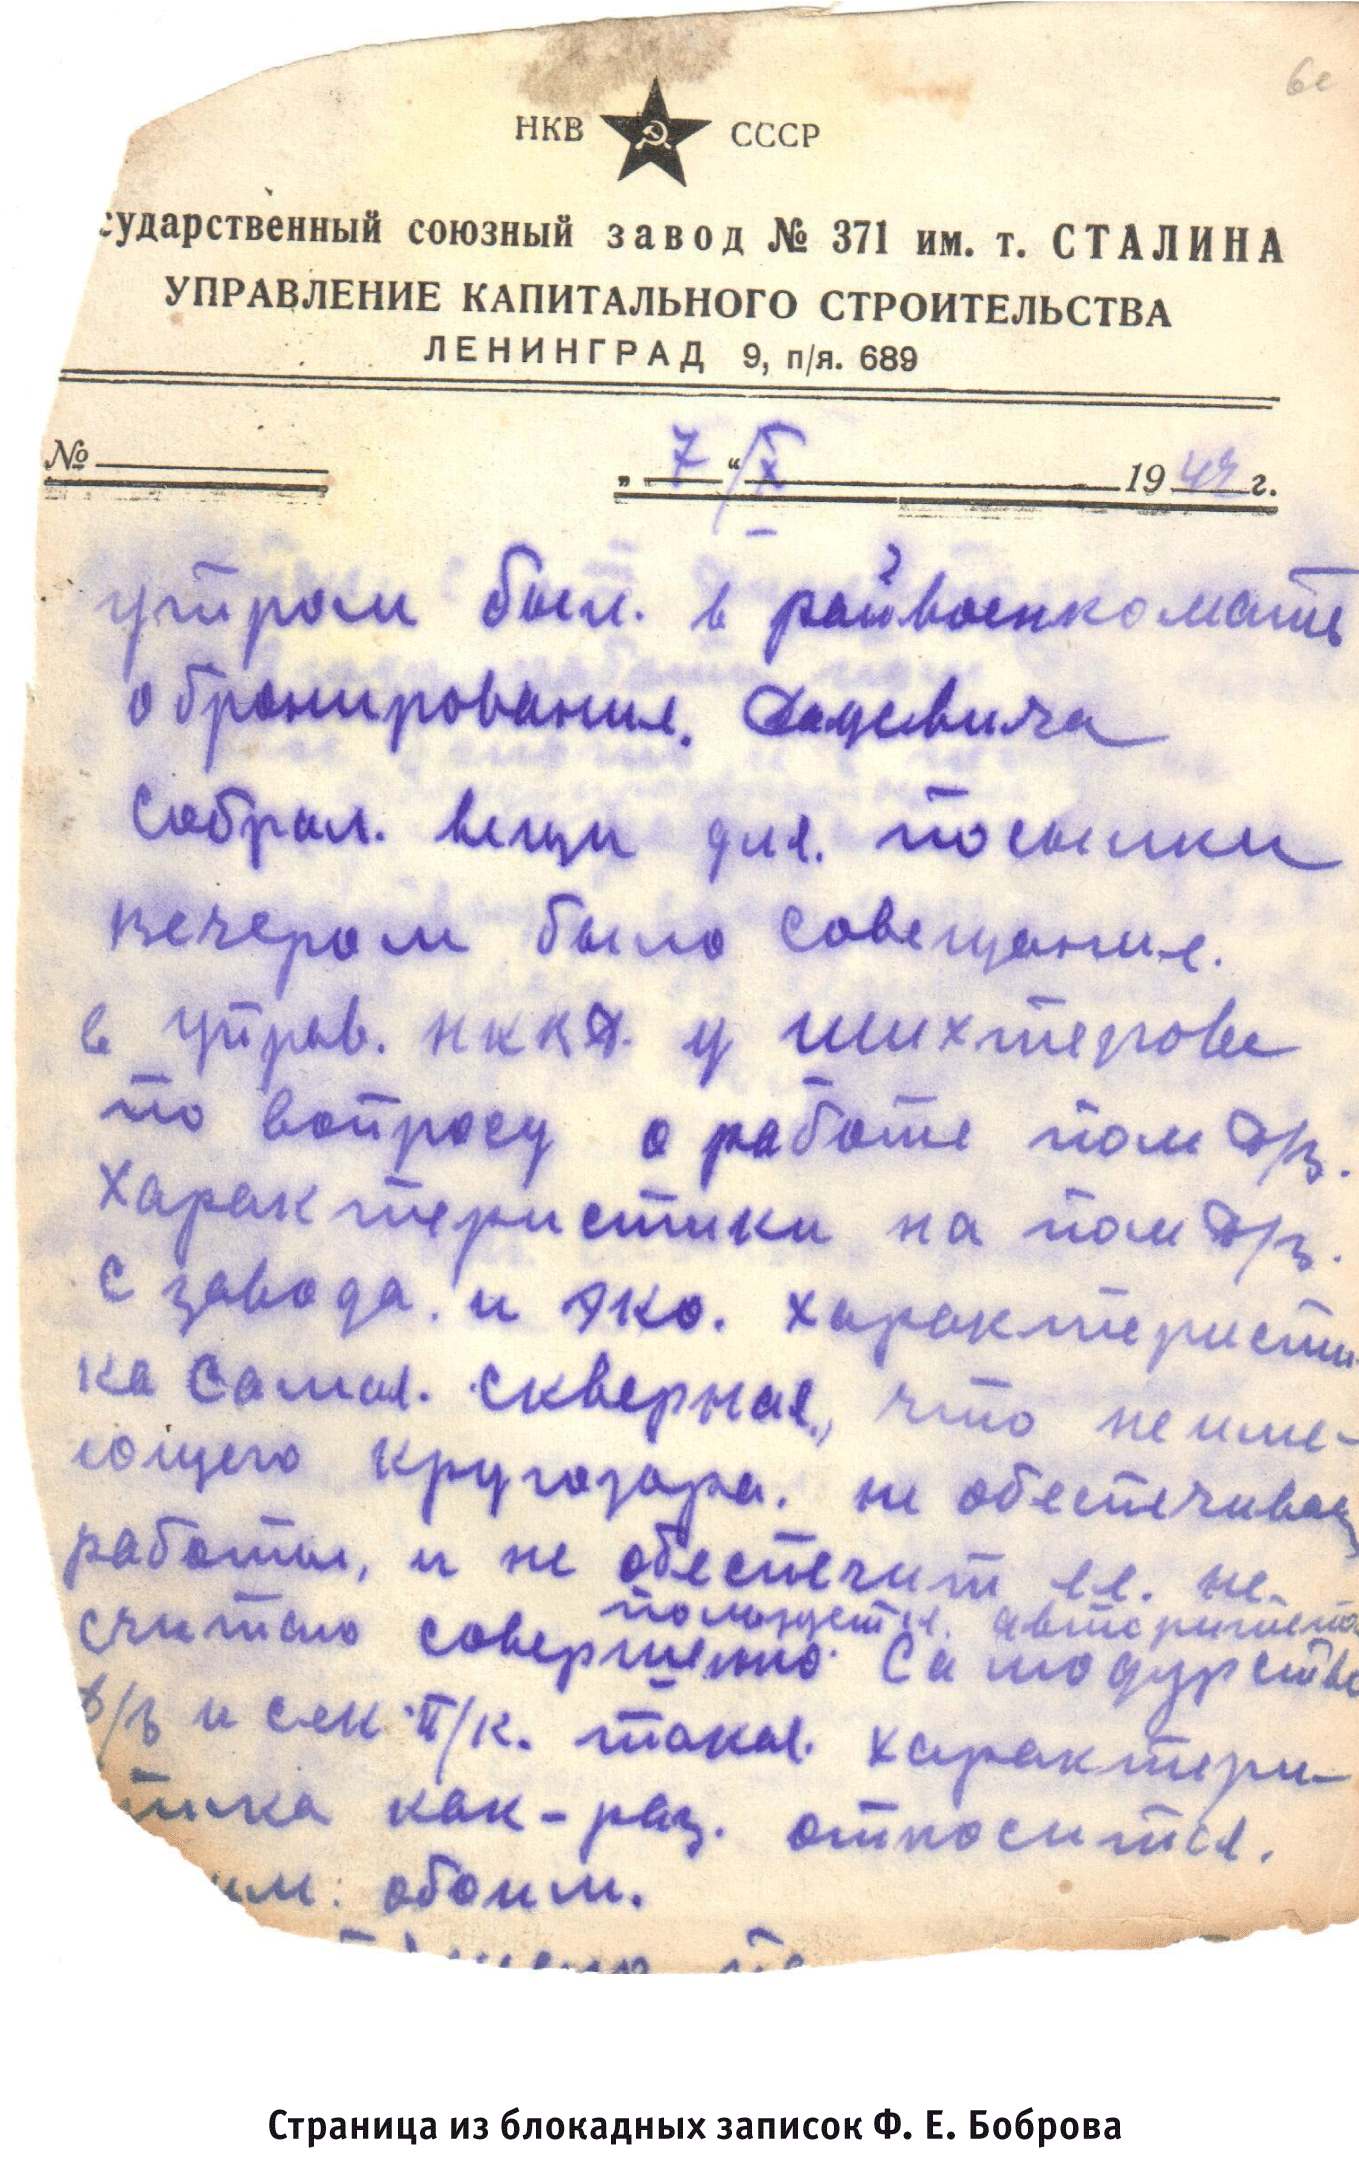 НКВ СССР
сударственный союзный завод № 371 им. т. СТАЛИНА
УПРАВЛЕНИЕ КАПИТАЛЬНОГО СТРОИТЕЛЬСТВА
ЛЕНИНГРАД 9, п/я. 689
№ „ 7 “ / X 19 42 г.
утром был. в райвоенкомате
о бронировании.
собрал. вещи для. посылки
вечером было совещание.
в управ. у Шихтерова
по вопросу о работе пом д/з.
характеристики на пом д/з.
с завода. и характеристи
ка самая. скверная., что не име-
ющего кругозора. не обеспечивающ
работы, и не обеспечит ее. не.
пользуется. авторитето
считаю совершенно самодурство
д/з и сек п/к. такая. характери-
тика как-раз. относится.
им: обоим.
Страница из блокадных записок Ф. Е. Боброва